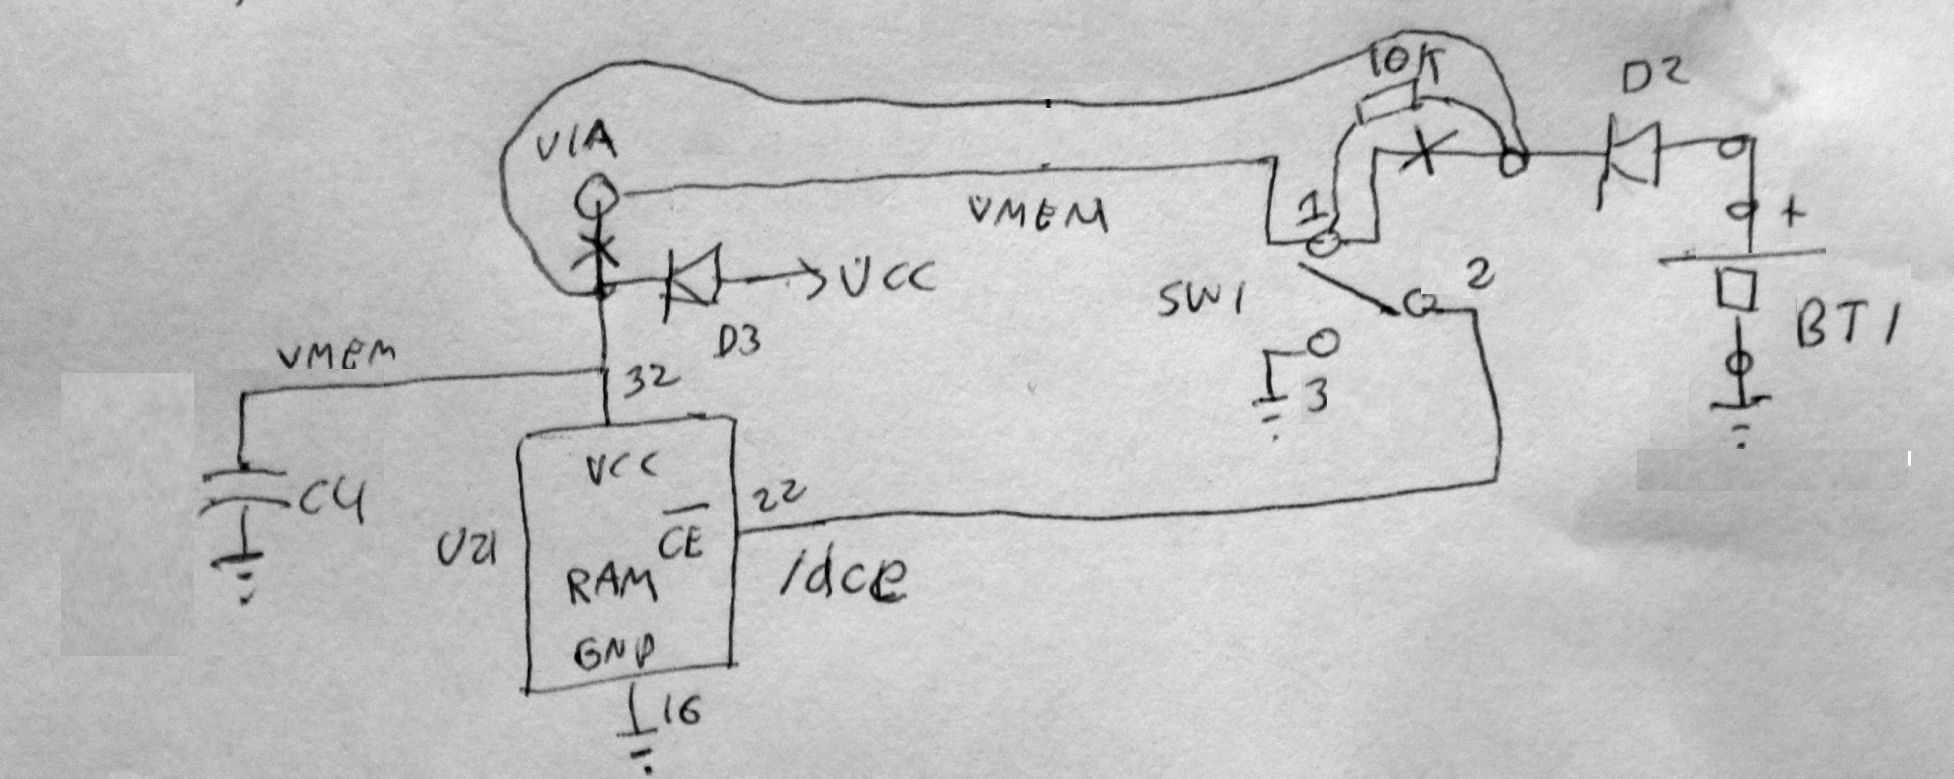 10K
D2
VIA
VMEM
1
+
VCC
SW1
2
D3
BT1
VMEM
32
3
VCC
C4
22
U21
CE
RAM
/dce
GND
16